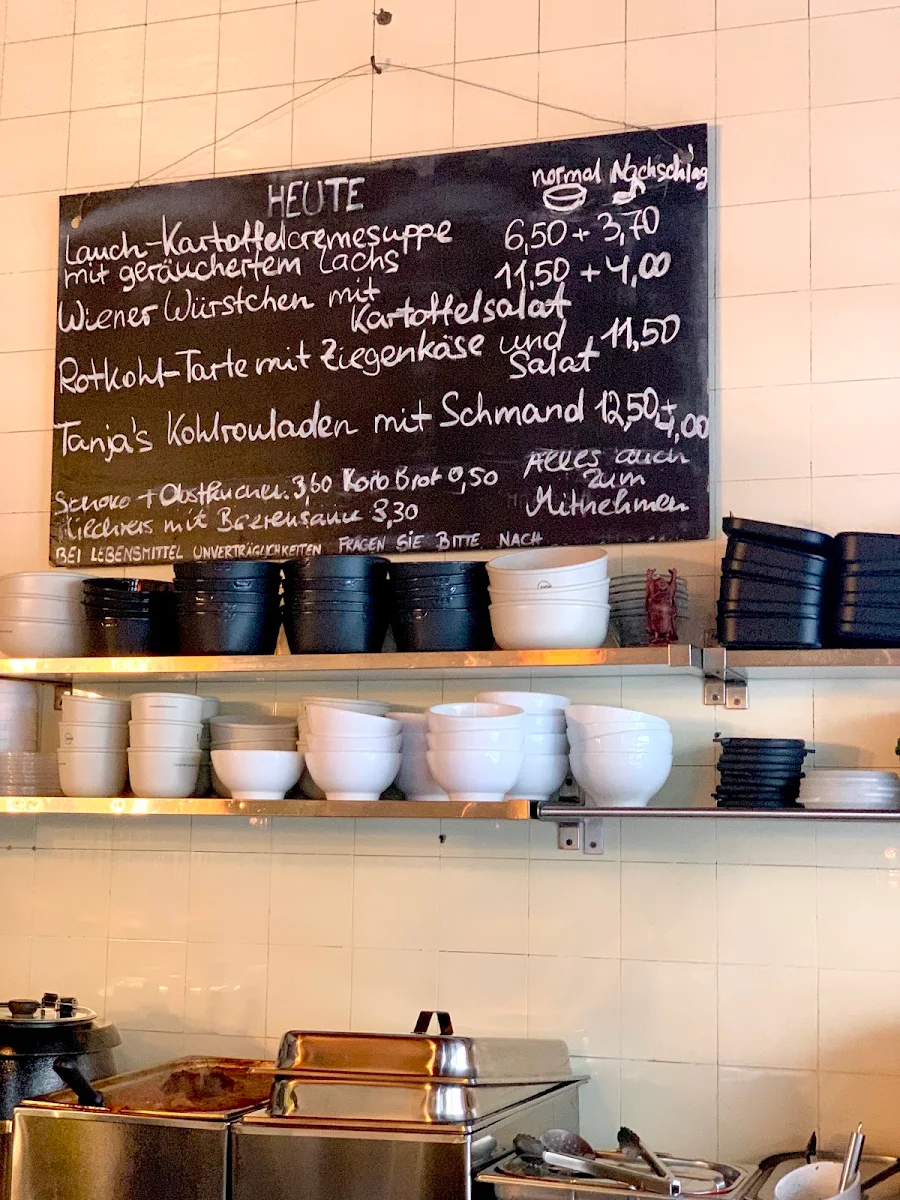 HEUTE
normal Nachschlag
Lauch-Kartoffelcremesuppe 6,50 + 3,70
mit geräuchertem Lachs
Wiener Würstchen mit 11,50 + 4,00
Kartoffelsalat
Rotkohl-Tarte mit Ziegenkäse und 11,50
Salat
Tanja's Kohlrouladen mit Schmand 12,50 + 4,00
Schoko + Obstkuchen. 3,60 Korb Brot 0,50
Milchreis mit Beerensauce 3,30
Alles auch
zum
Mitnehmen
BEI LEBENSMITTEL UNVERTRÄGLICHKEITEN FRAGEN SIE BITTE NACH